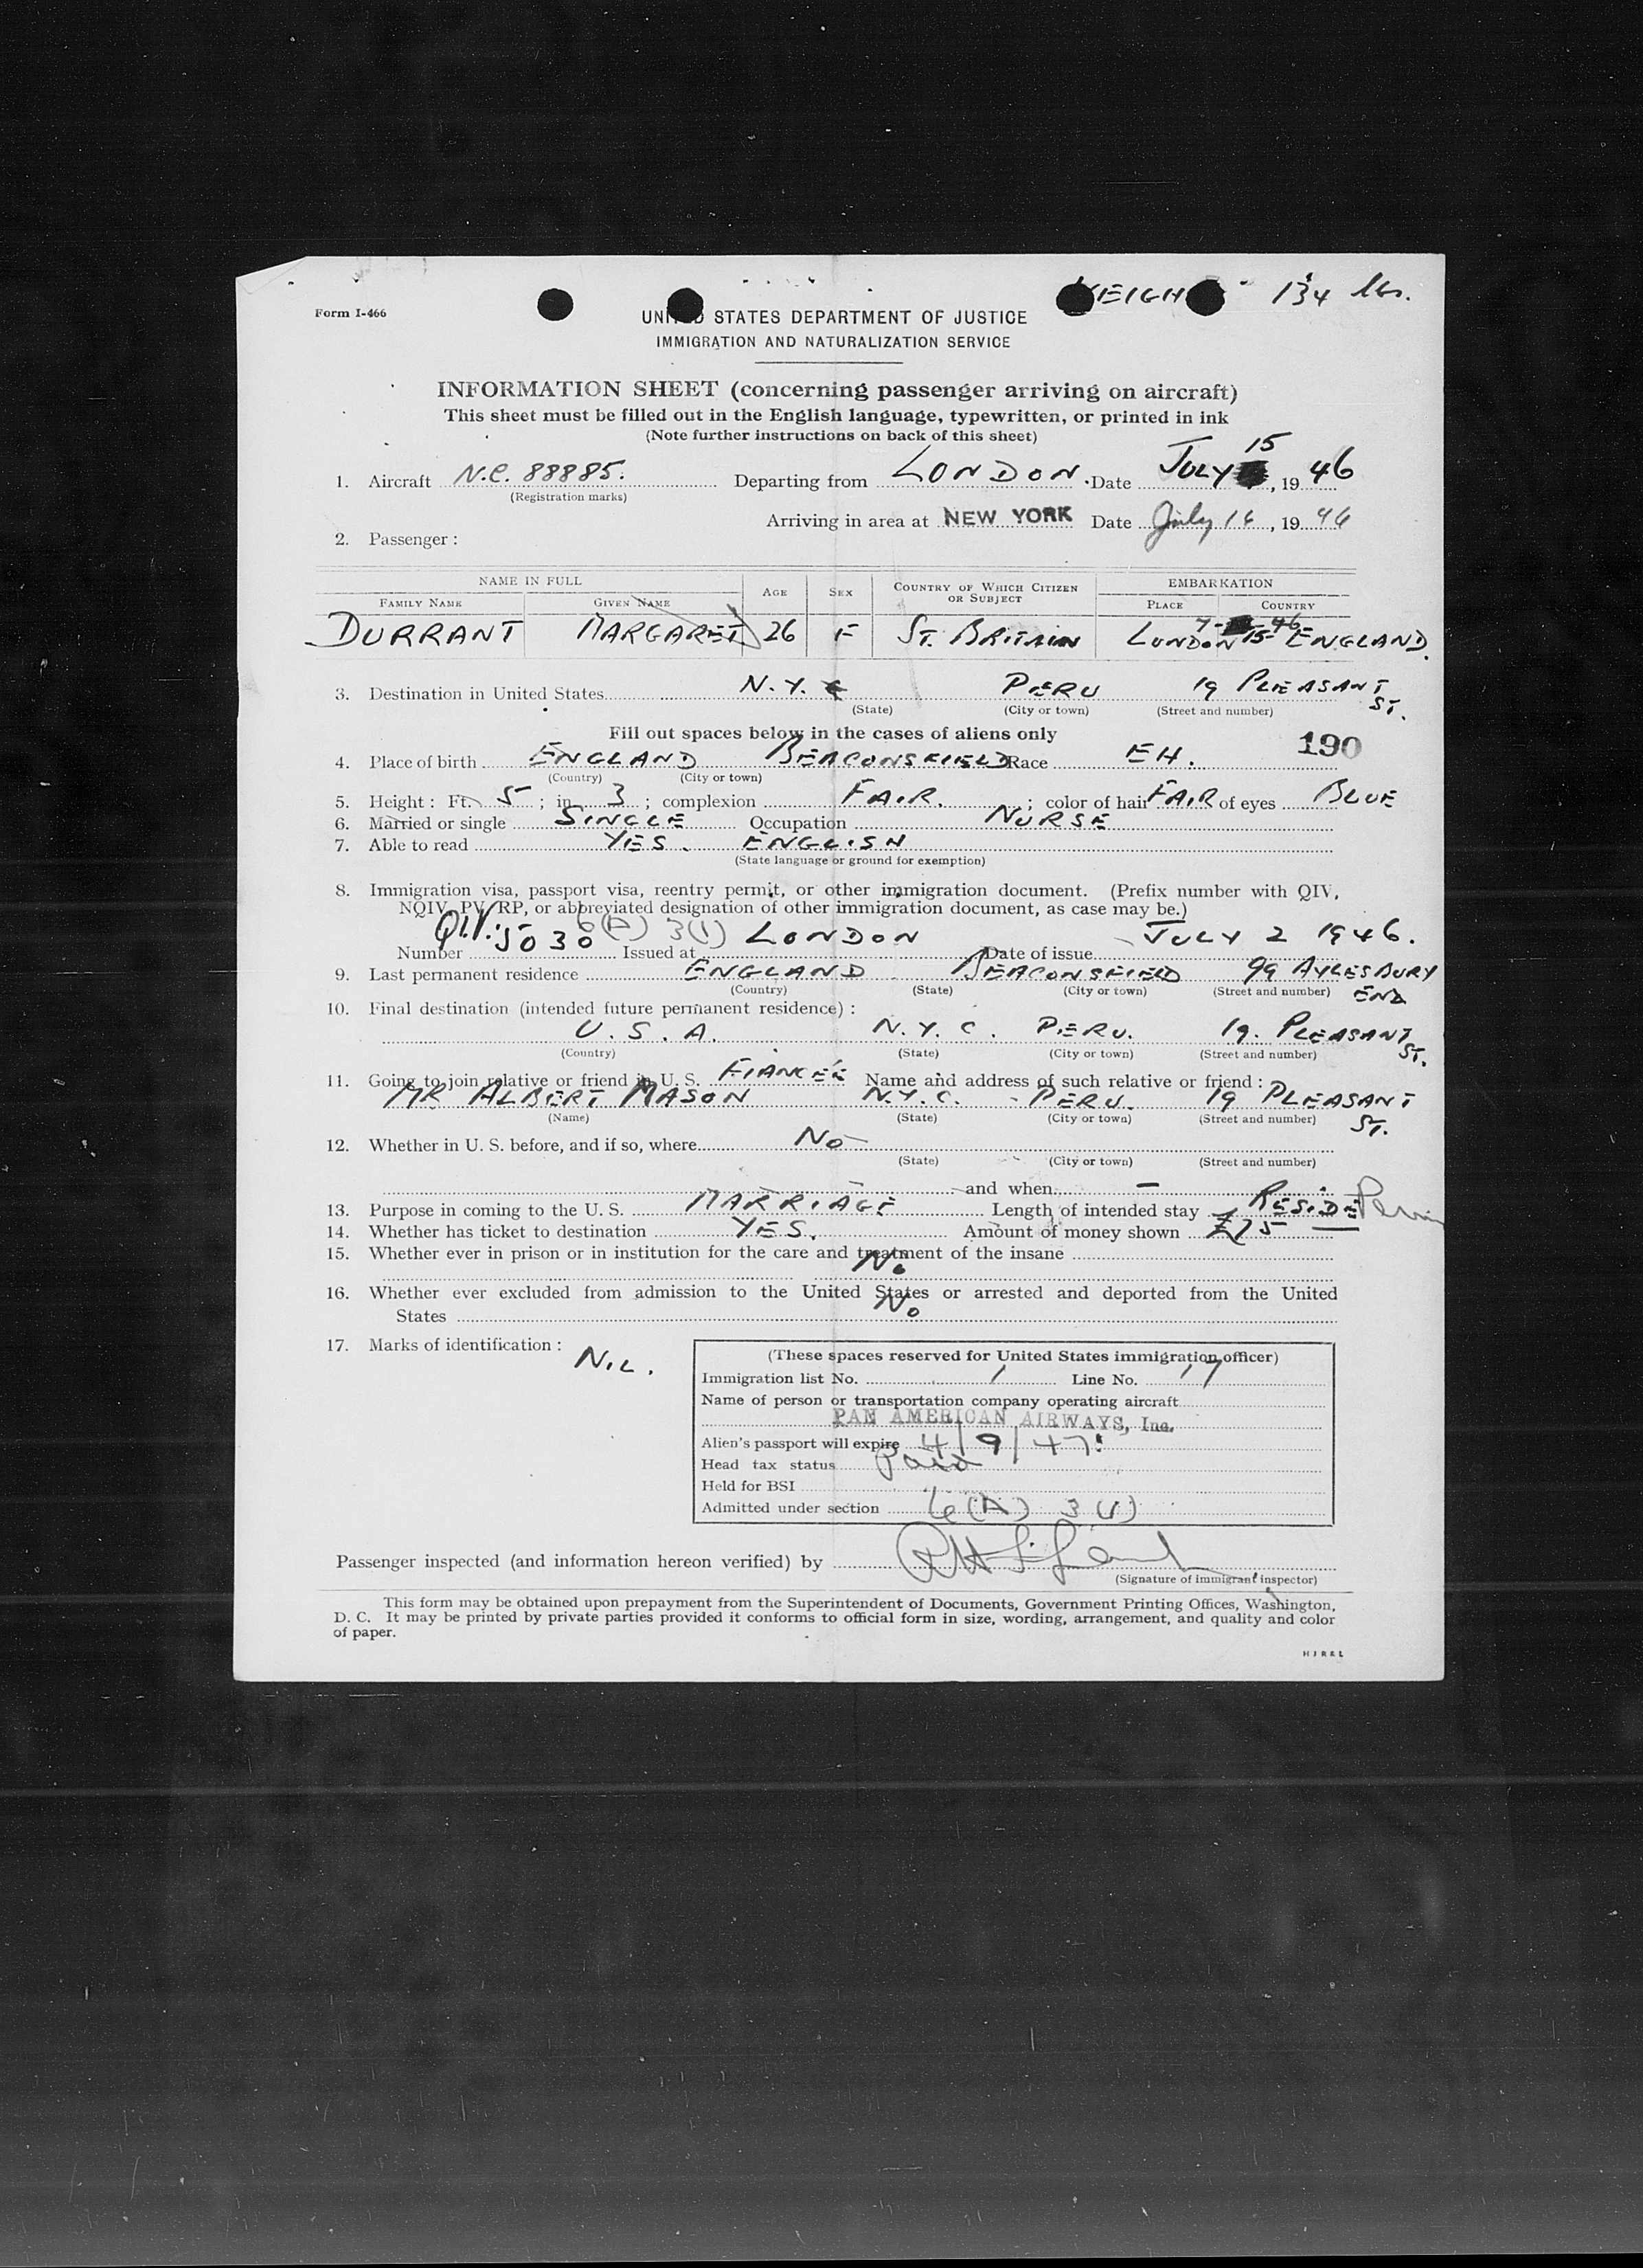 WEIGHT - 134 lbs.
Form I-466
UNITED STATES DEPARTMENT OF JUSTICE
IMMIGRATION AND NATURALIZATION SERVICE
INFORMATION SHEET (concerning passenger arriving on aircraft)
This sheet must be filled out in the English language, typewritten, or printed in ink
(Note further instructions on back of this sheet)
15
1. Aircraft N.C. 88885. Departing from LONDON. Date JULY , 19 46
(Registration marks)
Arriving in area at NEW YORK Date July 16, 19 46
2. Passenger :
NAME IN FULL AGE SEX COUNTRY OF WHICH CITIZEN OR SUBJECT EMBARKATION
FAMILY NAME GIVEN NAME PLACE COUNTRY
7- 15-46
DURRANT MARGARET 26 F ST. BRITAIN LONDON ENGLAND.
3. Destination in United States N.Y. PERU 19 PLEASANT ST.
(State) (City or town) (Street and number)
Fill out spaces below in the cases of aliens only
190
4. Place of birth ENGLAND BEACONSFIELD Race EH.
(Country) (City or town)
5. Height : Ft. 5 ; in. 3 ; complexion FAIR. ; color of hair FAIR of eyes BLUE
6. Married or single SINGLE Occupation NURSE
7. Able to read YES. ENGLISH
(State language or ground for exemption)
8. Immigration visa, passport visa, reentry permit, or other immigration document. (Prefix number with QIV,
NQIV, PV, RP, or abbreviated designation of other immigration document, as case may be.)
6(A) 3(1)
Number QIV. 5030 Issued at LONDON Date of issue JULY 2 1946.
9. Last permanent residence ENGLAND BEACONSFIELD 99 AYLESBURY END
(Country) (State) (City or town) (Street and number)
10. Final destination (intended future permanent residence) :
U.S.A. N.Y.C. PERU. 19. PLEASANT ST.
(Country) (State) (City or town) (Street and number)
11. Going to join relative or friend in U. S. FIANCÉE Name and address of such relative or friend :
MR ALBERT MASON N.Y.C. - PERU. 19 PLEASANT ST.
(Name) (State) (City or town) (Street and number)
12. Whether in U. S. before, and if so, where NO
(State) (City or town) (Street and number)
and when —
13. Purpose in coming to the U. S. MARRIAGE Length of intended stay RESIDE
14. Whether has ticket to destination YES. Amount of money shown £75
15. Whether ever in prison or in institution for the care and treatment of the insane
No
16. Whether ever excluded from admission to the United States or arrested and deported from the United
States No
17. Marks of identification : NIL.
(These spaces reserved for United States immigration officer)
Immigration list No. 1 Line No. 17
Name of person or transportation company operating aircraft
PAN AMERICAN AIRWAYS, Inc.
Alien's passport will expire 4/9/47
Head tax status Paid
Held for BSI
Admitted under section 6(A) 3(1)
Passenger inspected (and information hereon verified) by
(Signature of immigrant inspector)
This form may be obtained upon prepayment from the Superintendent of Documents, Government Printing Offices, Washington,
D. C. It may be printed by private parties provided it conforms to official form in size, wording, arrangement, and quality and color
of paper.